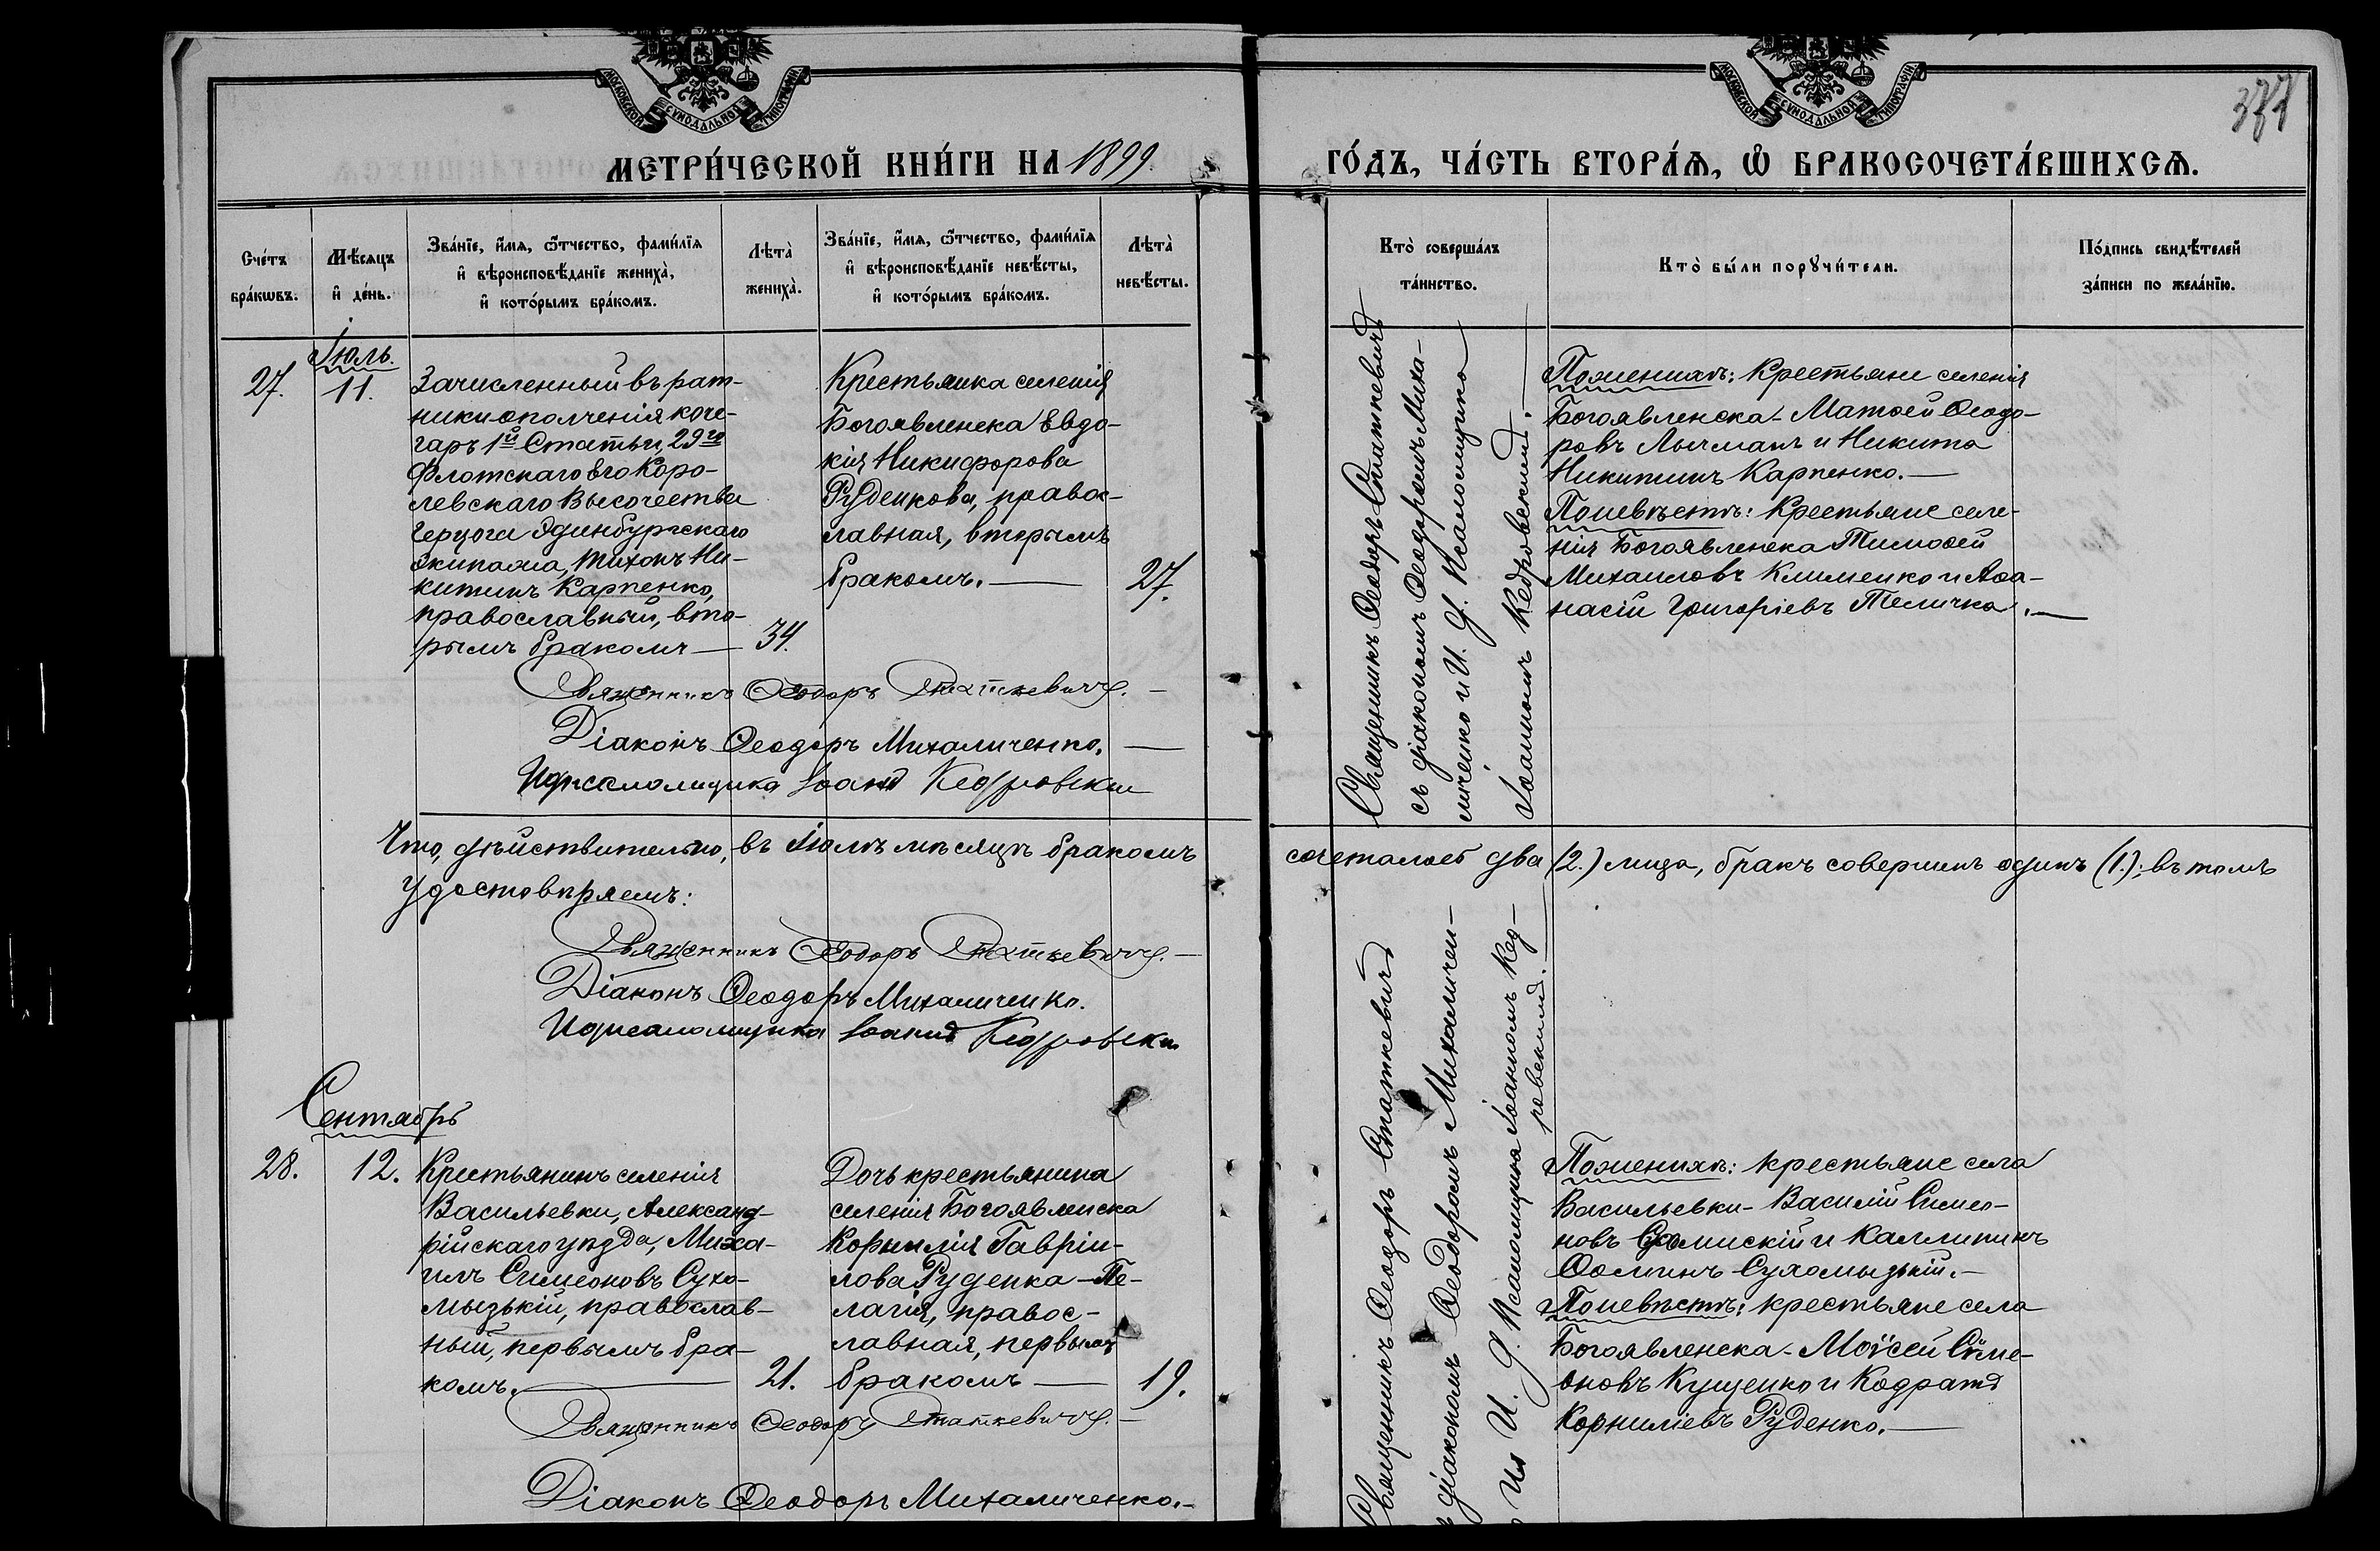 МОСКОВСКОЙ СУНОДАЛЬНОЙ ТИПОГРАФІИ
МОСКОВСКОЙ СУНОДАЛЬНОЙ ТИПОГРАФІИ
377
МЕТРИ́ЧЕСКОЙ КНИ́ГИ НА 1899
ГО́ДЪ, ЧА́СТЬ ВТОРА́Ѧ, Ѽ БРАКОСОЧЕТА́ВШИХСѦ.
Сче́тъ
бра́кѡвъ.
Мѣ́сяцъ
и҆ де́нь.
Зва́нїе, и҆́мя, ѻ҆́тчество, фами́лїя
и҆ вѣроисповѣ́данїе жениха̀,
и҆ кото́рымъ бра́комъ.
Лѣта̀
жениха̀.
Зва́нїе, и҆́мя, ѻ҆́тчество, фами́лїя
и҆ вѣроисповѣ́данїе невѣ́сты,
и҆ кото́рымъ бра́комъ.
Лѣта̀
невѣ́сты.
Кто̀ соверша́лъ
та́инство.
Кто̀ бы́ли порꙋчи́тели.
По́дпись свидѣ́телей
за́писи по жела́нїю.
Іюль.
27.
11.
Зачисленный въ рат-
ники ополченія коче-
гаръ 1й Статьи, 29го
Флотскаго Его Коро-
левскаго Высочества
Герцога Эдинбургскаго
экипажа, Тихонъ Ни-
китинъ Карпенко,
православный, вто-
рымъ бракомъ —
34.
Крестьянка селенія
Богоявленска Евдо-
кія Никифорова
Руденкова, правос-
лавная, вторымъ
бракомъ. —
27.
Священникъ Ѳеодоръ Статкевичъ
съ діакономъ Ѳеодоромъ Миха-
личенко и И. д. Псаломщика
Іоанномъ Кедровскимъ. —
По женихѣ: Крестьяне селенія
Богоявленска - Матѳей Ѳеодо-
ровъ Лычманъ и Никита
Никитинъ Карпенко. —
По невѣстѣ: Крестьяне селе-
нія Богоявленска Тимоѳей
Михаиловъ Клименко и Аѳа-
насій Григоріевъ Теличка. —
Священникъ Ѳеодоръ Статкевичъ. —
Діаконъ Ѳеодоръ Михаличенко. —
И д псаломщика Іоаннъ Кедровскій
Что, дѣйствительно, въ Іюлѣ мѣсяцѣ бракомъ сочеталось два (2.) лица, бракъ совершенъ одинъ (1.); въ томъ
удостовѣряемъ:
Священникъ Ѳеодоръ Статкевичъ. —
Діаконъ Ѳеодоръ Михаличенко.
И д псаломщика Іоаннъ Кедровскій
Сентябрь
28.
12.
Крестьянинъ селенія
Васильевки, Александ-
рійскаго уѣзда, Миха-
илъ Симеоновъ Сухо-
мызькій, православ-
ный, первымъ бра-
комъ. —
21.
Дочь крестьянина
селенія Богоявленска
Корнилія Гавріи-
лова Руденка - Пе-
лагія, правос-
лавная, первымъ
бракомъ —
19.
Священникъ Ѳеодоръ Статкевичъ
діакономъ Ѳеодоромъ Михаличен-
И. д. Псаломщика Іоанномъ Кед-
ровскимъ. —
По женихѣ: крестьяне села
Васильевки - Василій Симео-
новъ и Каллиникъ
Ѳоминъ Сухомызькій. —
По невѣстѣ: крестьяне села
Богоявленска - Моѵсей Симе-
оновъ Кущенко и Кодратъ
Корниліевъ Руденко. —
Священникъ Ѳеодоръ Статкевичъ. —
Діаконъ Ѳеодоръ Михаличенко. —